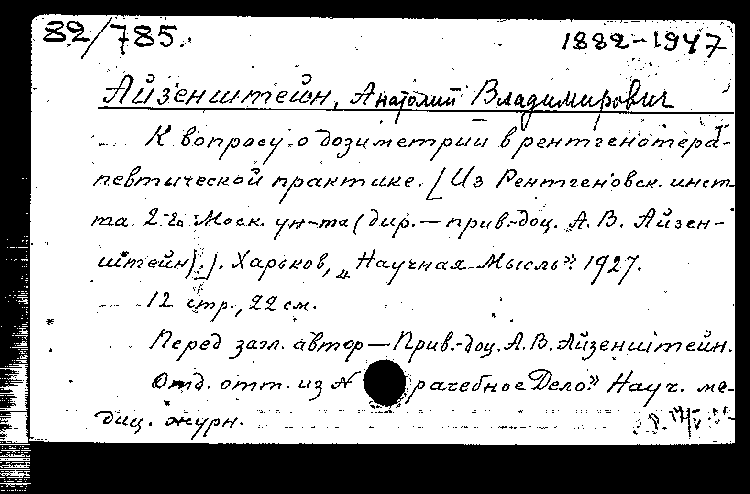 82/785.
1882-1947
Айзенштейн, Анатолий Владимирович
К вопросу о дозиметрии в рентгенотера-
певтической практике. [Из Рентгеновск. инст-
та 2-го Моск. ун-та (дир. — прив.-доц. А. В. Айзен-
штейн).]. Харьков, „Научная Мысль". 1927.
12 стр., 22 см.
Перед загл. автор — Прив.-доц. А. В. Айзенштейн.
Отд. отт. из рачебное Дело" Науч. ме-
диц. журн.